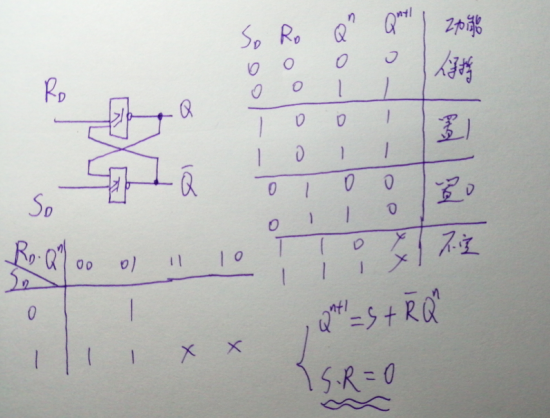 S_D R_D Q^n Q^{n+1} 功能
0 0 0 0 保持
0 0 1 1
1 0 0 1 置1
1 0 1 1
0 1 0 0 置0
0 1 1 0
1 1 0 × 不定
1 1 1 ×
R_D ≥1 Q
≥1 Q̅
S_D
R_D·Q^n 00 01 11 10
S_D
0 1
1 1 1 × ×
Q^{n+1}=S+R̅Q^n
S·R=0